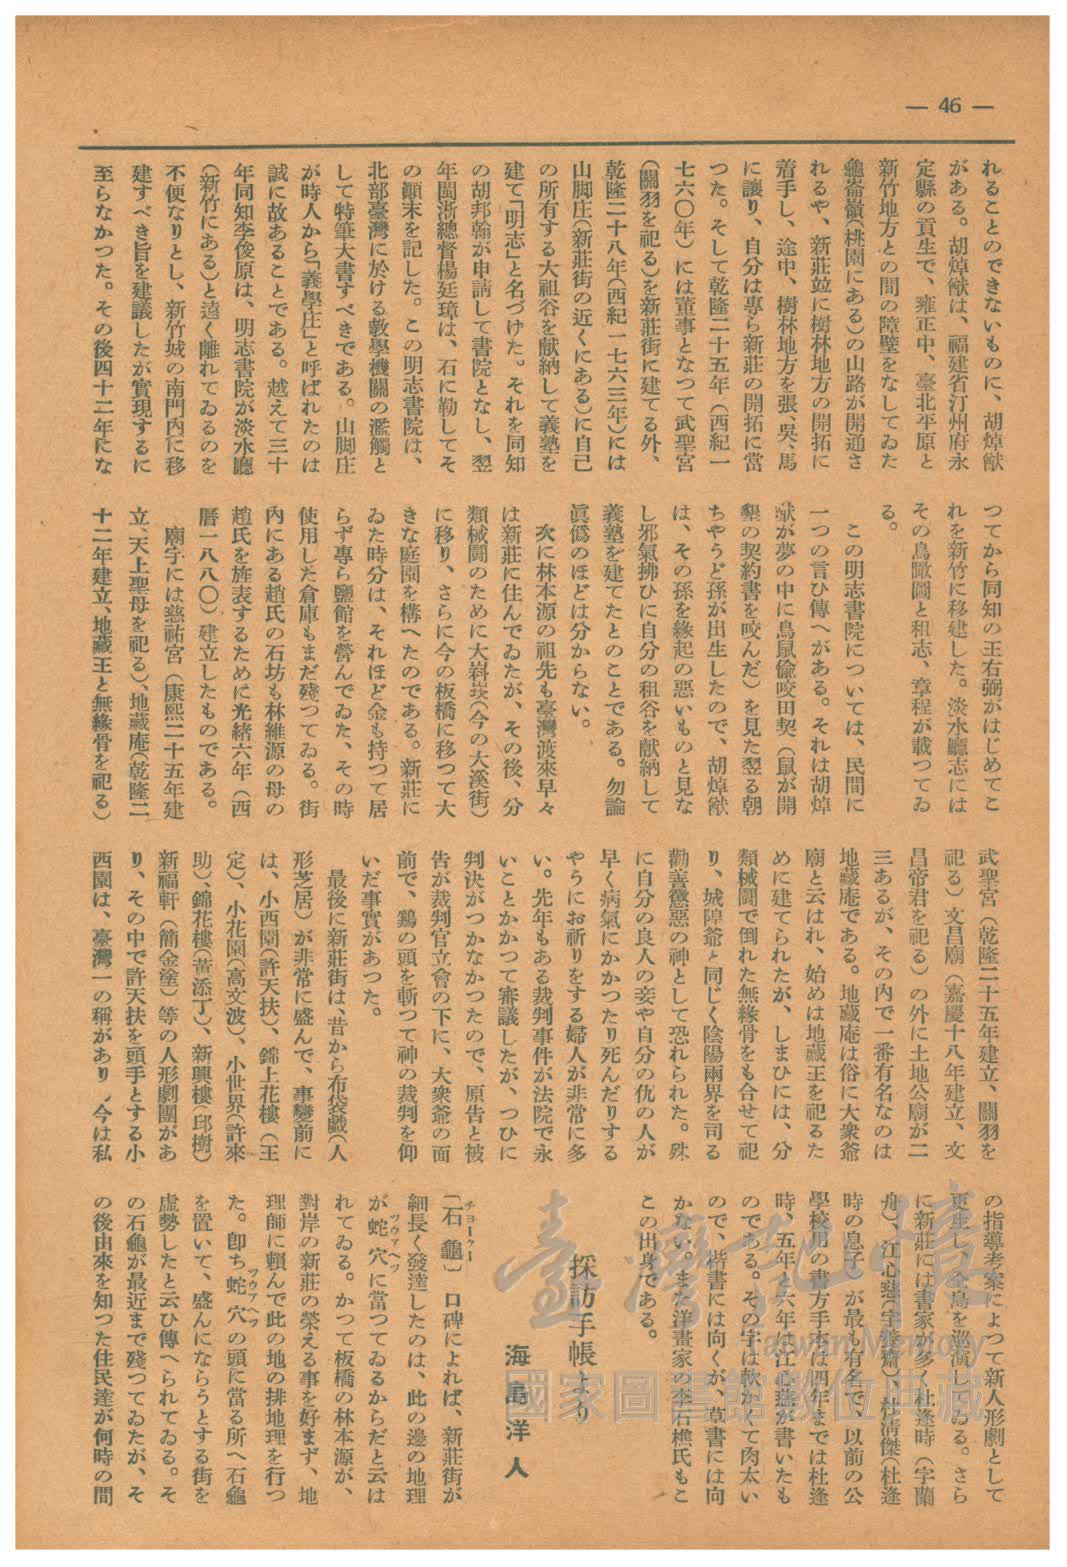 — 46 —
れることとのできないものに、胡焯猷
がある。胡焯猷は、福建省汀州府永
定縣の貢生で、雍正中、臺北平原と
新竹地方との間の障壁をなしてゐた
龜崙嶺(桃園にある)の山路が開通さ
れるや、新莊竝に樹林地方の開拓に
着手し、途中、樹林地方を張、吳、馬
に讓り、自分は專ら新莊の開拓に當
つた。そして乾隆二十五年(西紀一
七六〇年)には董事となつて武聖宮
(關羽を祀る)を新莊街に建てる外、
乾隆二十八年(西紀一七六三年)には
山脚庄(新莊街の近くにある)に自己
の所有する大祖谷を献納して義塾を
建て「明志」と名づけた。それを同知
の胡邦翰が申請して書院となし、翌
年閩浙總督楊廷璋は、石に勒してそ
の顚末を記した。この明志書院は、
北部臺灣に於ける敎學機關の濫觴と
して特筆大書すべきである。山脚庄
が時人から「義學庄」と呼ばれたのは
誠に故あることである。越えて三十
年同知李俊原は、明志書院が淡水廳
(新竹にある)と遠く離れてゐるのを
不便なりとし、新竹城の南門內に移
建すべき旨を建議したが實現するに
至らなかつた。その後四十二年にな
つてから同知の王右弼がはじめてこ
れを新竹に移建した。淡水廳志には
その鳥瞰圖と租志、章程が載つてゐ
る。
この明志書院については、民間に
一つの言ひ傳へがある。それは胡焯
猷が夢の中に鳥鼠偸咬田契(鼠が開
墾の契約書を咬んだ)を見た翌る朝
ちやうど孫が出生したので、胡焯猷
は、その孫を緣起の惡いものと見な
し邪氣拂ひに自分の租谷を献納して
義塾を建てたとのことである。勿論
眞僞のほどは分からない。
次に林本源の祖先も臺灣渡來早々
は新莊に住んでゐたが、その後、分
類械鬪のために大嵙崁(今の大溪街)
に移り、さらに今の板橋に移つて大
きな庭園を構へたのである。新莊に
ゐた時分は、それほど金も持つて居
らず專ら鹽館を營んでゐた、その時
使用した倉庫もまだ殘つてゐる。街
內にある趙氏の石坊も林維源の母の
趙氏を旌表するために光緖六年(西
曆一八八〇)建立したものである。
廟宇には慈祐宮(康熙二十五年建
立、天上聖母を祀る)、地藏庵(乾隆二
十二年建立、地藏王と無緣骨を祀る)
武聖宮(乾隆二十五年建立、關羽を
祀る)文昌廟(嘉慶十八年建立、文
昌帝君を祀る)の外に土地公廟が二
三あるが、その內で一番有名なのは
地藏庵である。地藏庵は俗に大衆爺
廟と云はれ、始めは地藏王を祀るた
めに建てられたが、しまひには、分
類械鬪で倒れた無緣骨をも合せて祀
り、城隍爺と同じく陰陽兩界を司る
勸善懲惡の神として恐れられた。殊
に自分の良人の妾や自分の仇の人が
早く病氣にかかつたり死んだりする
やうにお祈りをする婦人が非常に多
い。先年もある裁判事件が法院で永
いことかかつて審議したが、つひに
判決がつかなかつたので、原告と被
告が裁判官立會の下に、大衆爺の面
前で、鷄の頭を斬つて神の裁判を仰
いだ事實があつた。
最後に新莊街は、昔から布袋戲(人
形芝居)が非常に盛んで、事變前に
は、小西園(許天扶)、錦上花樓(王
定)、小花園(高文波)、小世界(許來
助)、錦花樓(黃添丁)、新興樓(邱樹)
新福軒(簡金塗)等の人形劇團があ
り、その中で許天扶を頭手とする小
西園は、臺灣一の稱があり、今は私
の指導考案によつて新人形劇として
更生し、全島を巡演してゐる。さら
に新莊には書家が多く杜逢時(字蘭
舟)、江心慈(字養齋)、杜淸傑(杜逢
時の息子)が最も有名で、以前の公
學校用の書方手本は四年までは杜逢
時、五年と六年は江心慈が書いたも
のである。その字は軟かくて肉太い
ので、楷書には向くが、草書には向
かない。また洋畫家の李石樵氏もこ
この出身である。
採訪手帳より
海島洋人
〔石龜〕チヨークー 口碑によれば、新莊街が
細長く發達したのは、此の邊の地理
が蛇穴ツウァヘツに當つてゐるからだと云は
れてゐる。かつて板橋の林本源が、
對岸の新莊の榮える事を好まず、地
理師に賴んで此の地の排地理を行つ
た。卽ち蛇穴ツウァヘツの頭に當る所へ石龜
を置いて、盛んにならうとする街を
虛勢したと云ひ傳へられてゐる。そ
の石龜が最近まで殘つてゐたが、そ
の後由來を知つた住民達が何時の間
臺灣記憶
Taiwan Memory
國家圖書館數位典藏